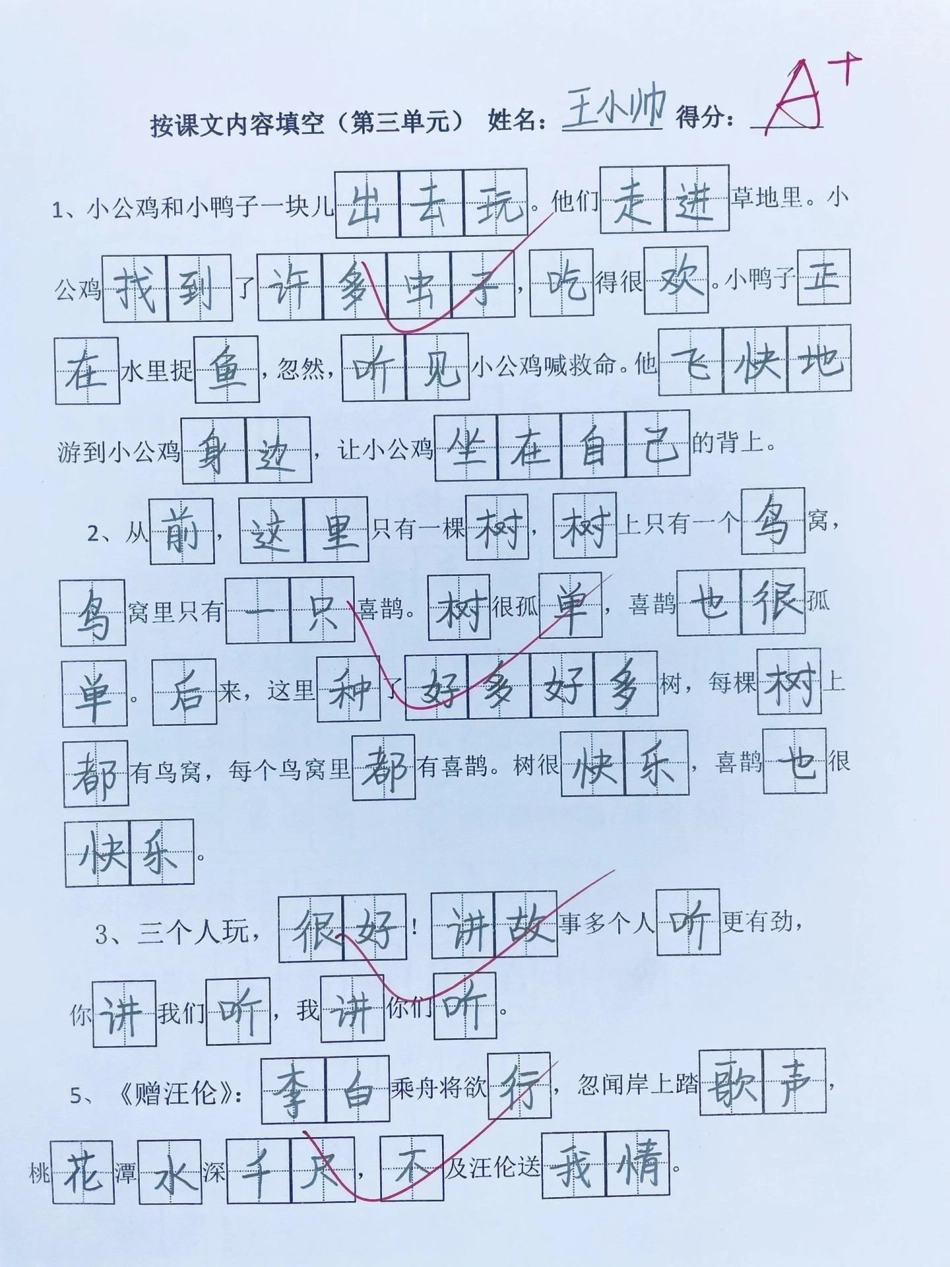 按课文内容填空（第三单元） 姓名：王小帅 得分：A+
1、小公鸡和小鸭子一块儿出去玩。他们走进草地里。小
公鸡找到了许多虫子，吃得很欢。小鸭子正
在水里捉鱼，忽然，听见小公鸡喊救命。他飞快地
游到小公鸡身边，让小公鸡坐在自己的背上。
2、从前，这里只有一棵树，树上只有一个鸟窝，
鸟窝里只有一只喜鹊。树很孤单，喜鹊也很孤
单。后来，这里种了好多好多树，每棵树上
都有鸟窝，每个鸟窝里都有喜鹊。树很快乐，喜鹊也很
快乐。
3、三个人玩，很好！讲故事多个人听更有劲，
你讲我们听，我讲你们听。
5、《赠汪伦》：李白乘舟将欲行，忽闻岸上踏歌声，
桃花潭水深千尺，不及汪伦送我情。